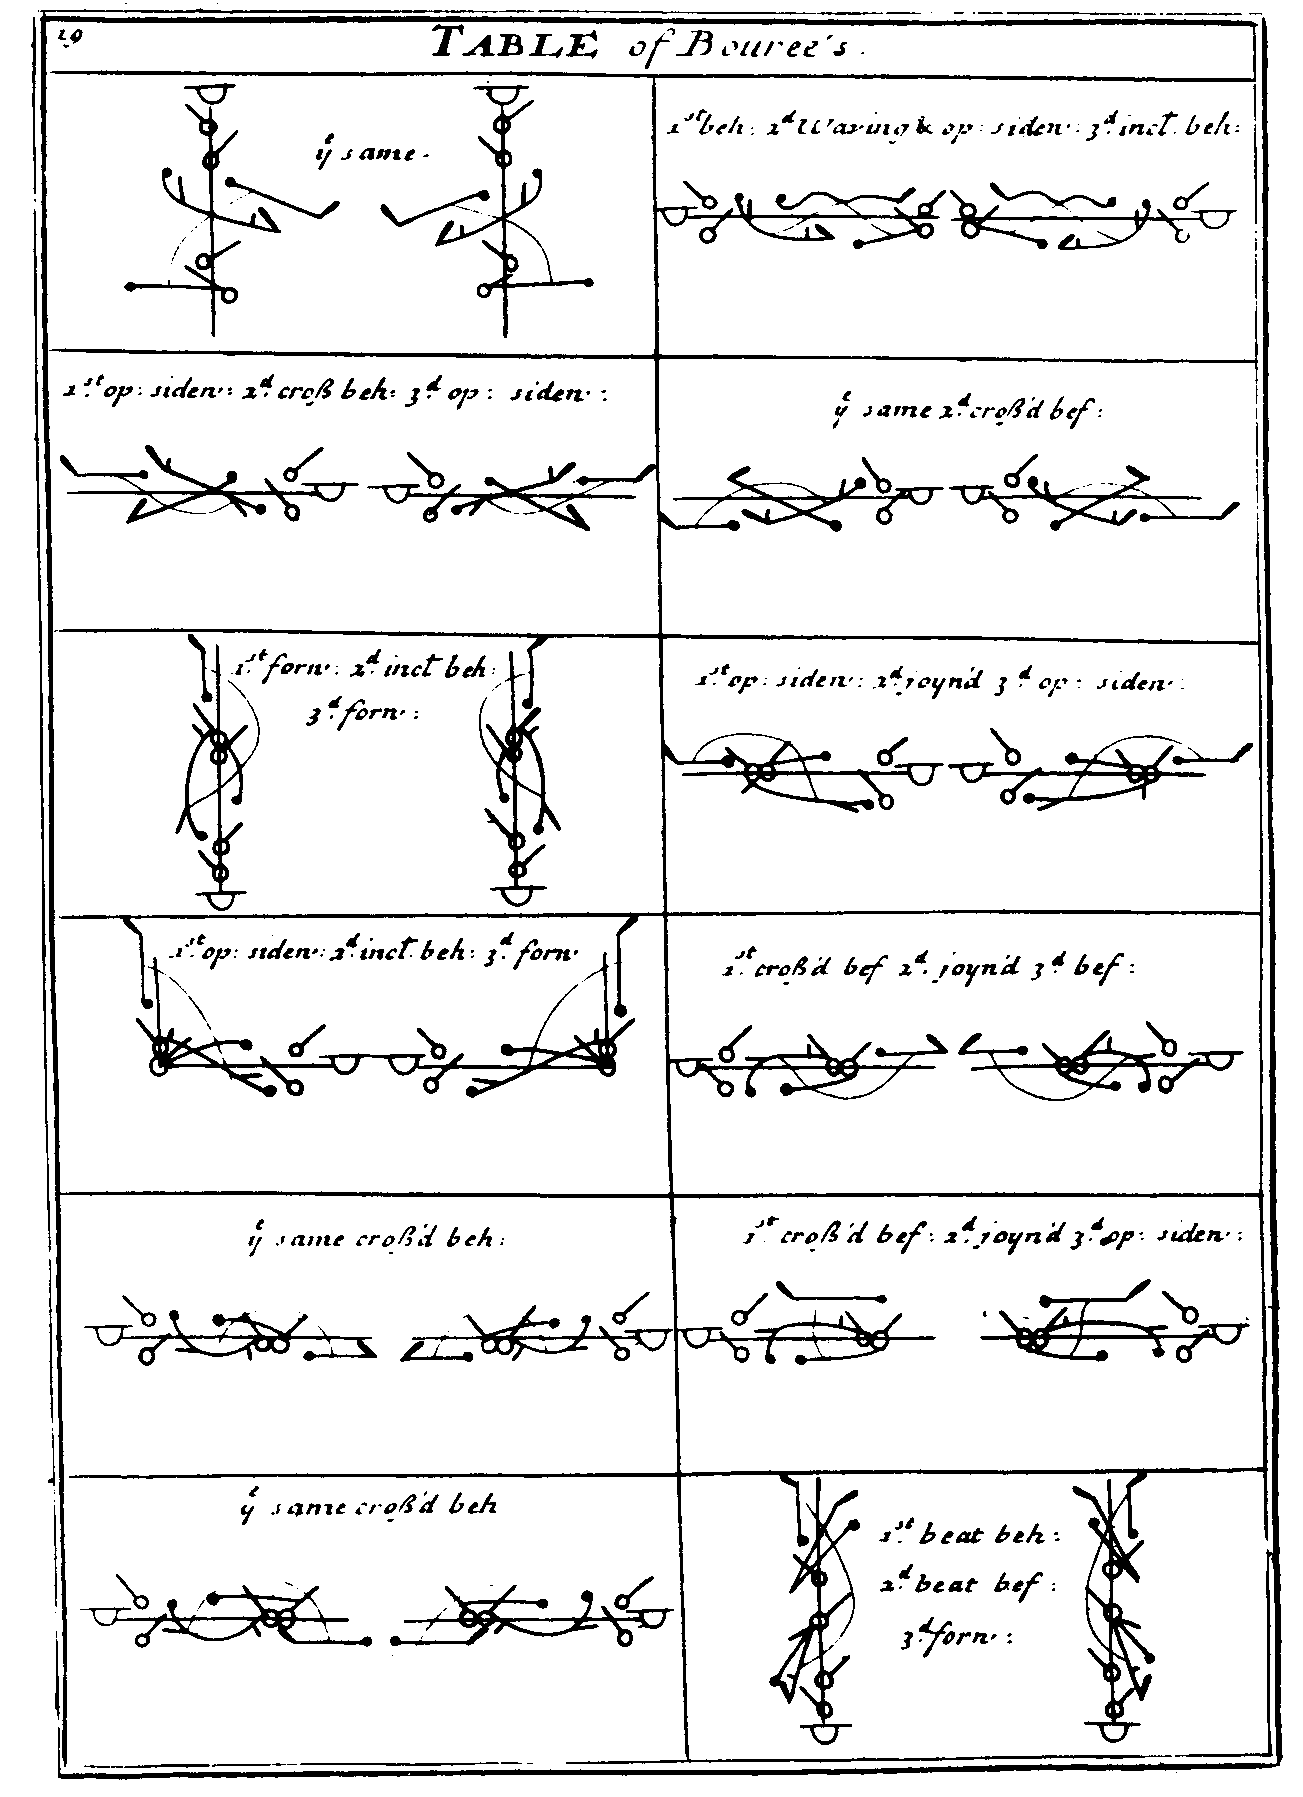 19
TABLE of Bouree's.
yᵗ same.
1ˢᵗ beh: 2ᵈ Waving & op: siden: 3ᵈ inct. beh:
1ˢᵗ op: siden: 2ᵈ croß beh: 3ᵈ op: siden:
yᵗ same 2ᵈ croß'd bef:
1ˢᵗ forw: 2ᵈ inct beh:
3ᵈ forw:
1ˢᵗ op: siden: 2ᵈ joyn'd 3ᵈ op: siden:
1ˢᵗ op: siden: 2ᵈ inct. beh: 3ᵈ forw:
1ˢᵗ croß'd bef 2ᵈ joyn'd 3ᵈ bef:
yᵗ same croß'd beh:
1ˢᵗ croß'd bef: 2ᵈ joyn'd 3ᵈ op: siden:
yᵗ same croß'd beh
1ˢᵗ beat beh:
2ᵈ beat bef:
3ᵈ forw: